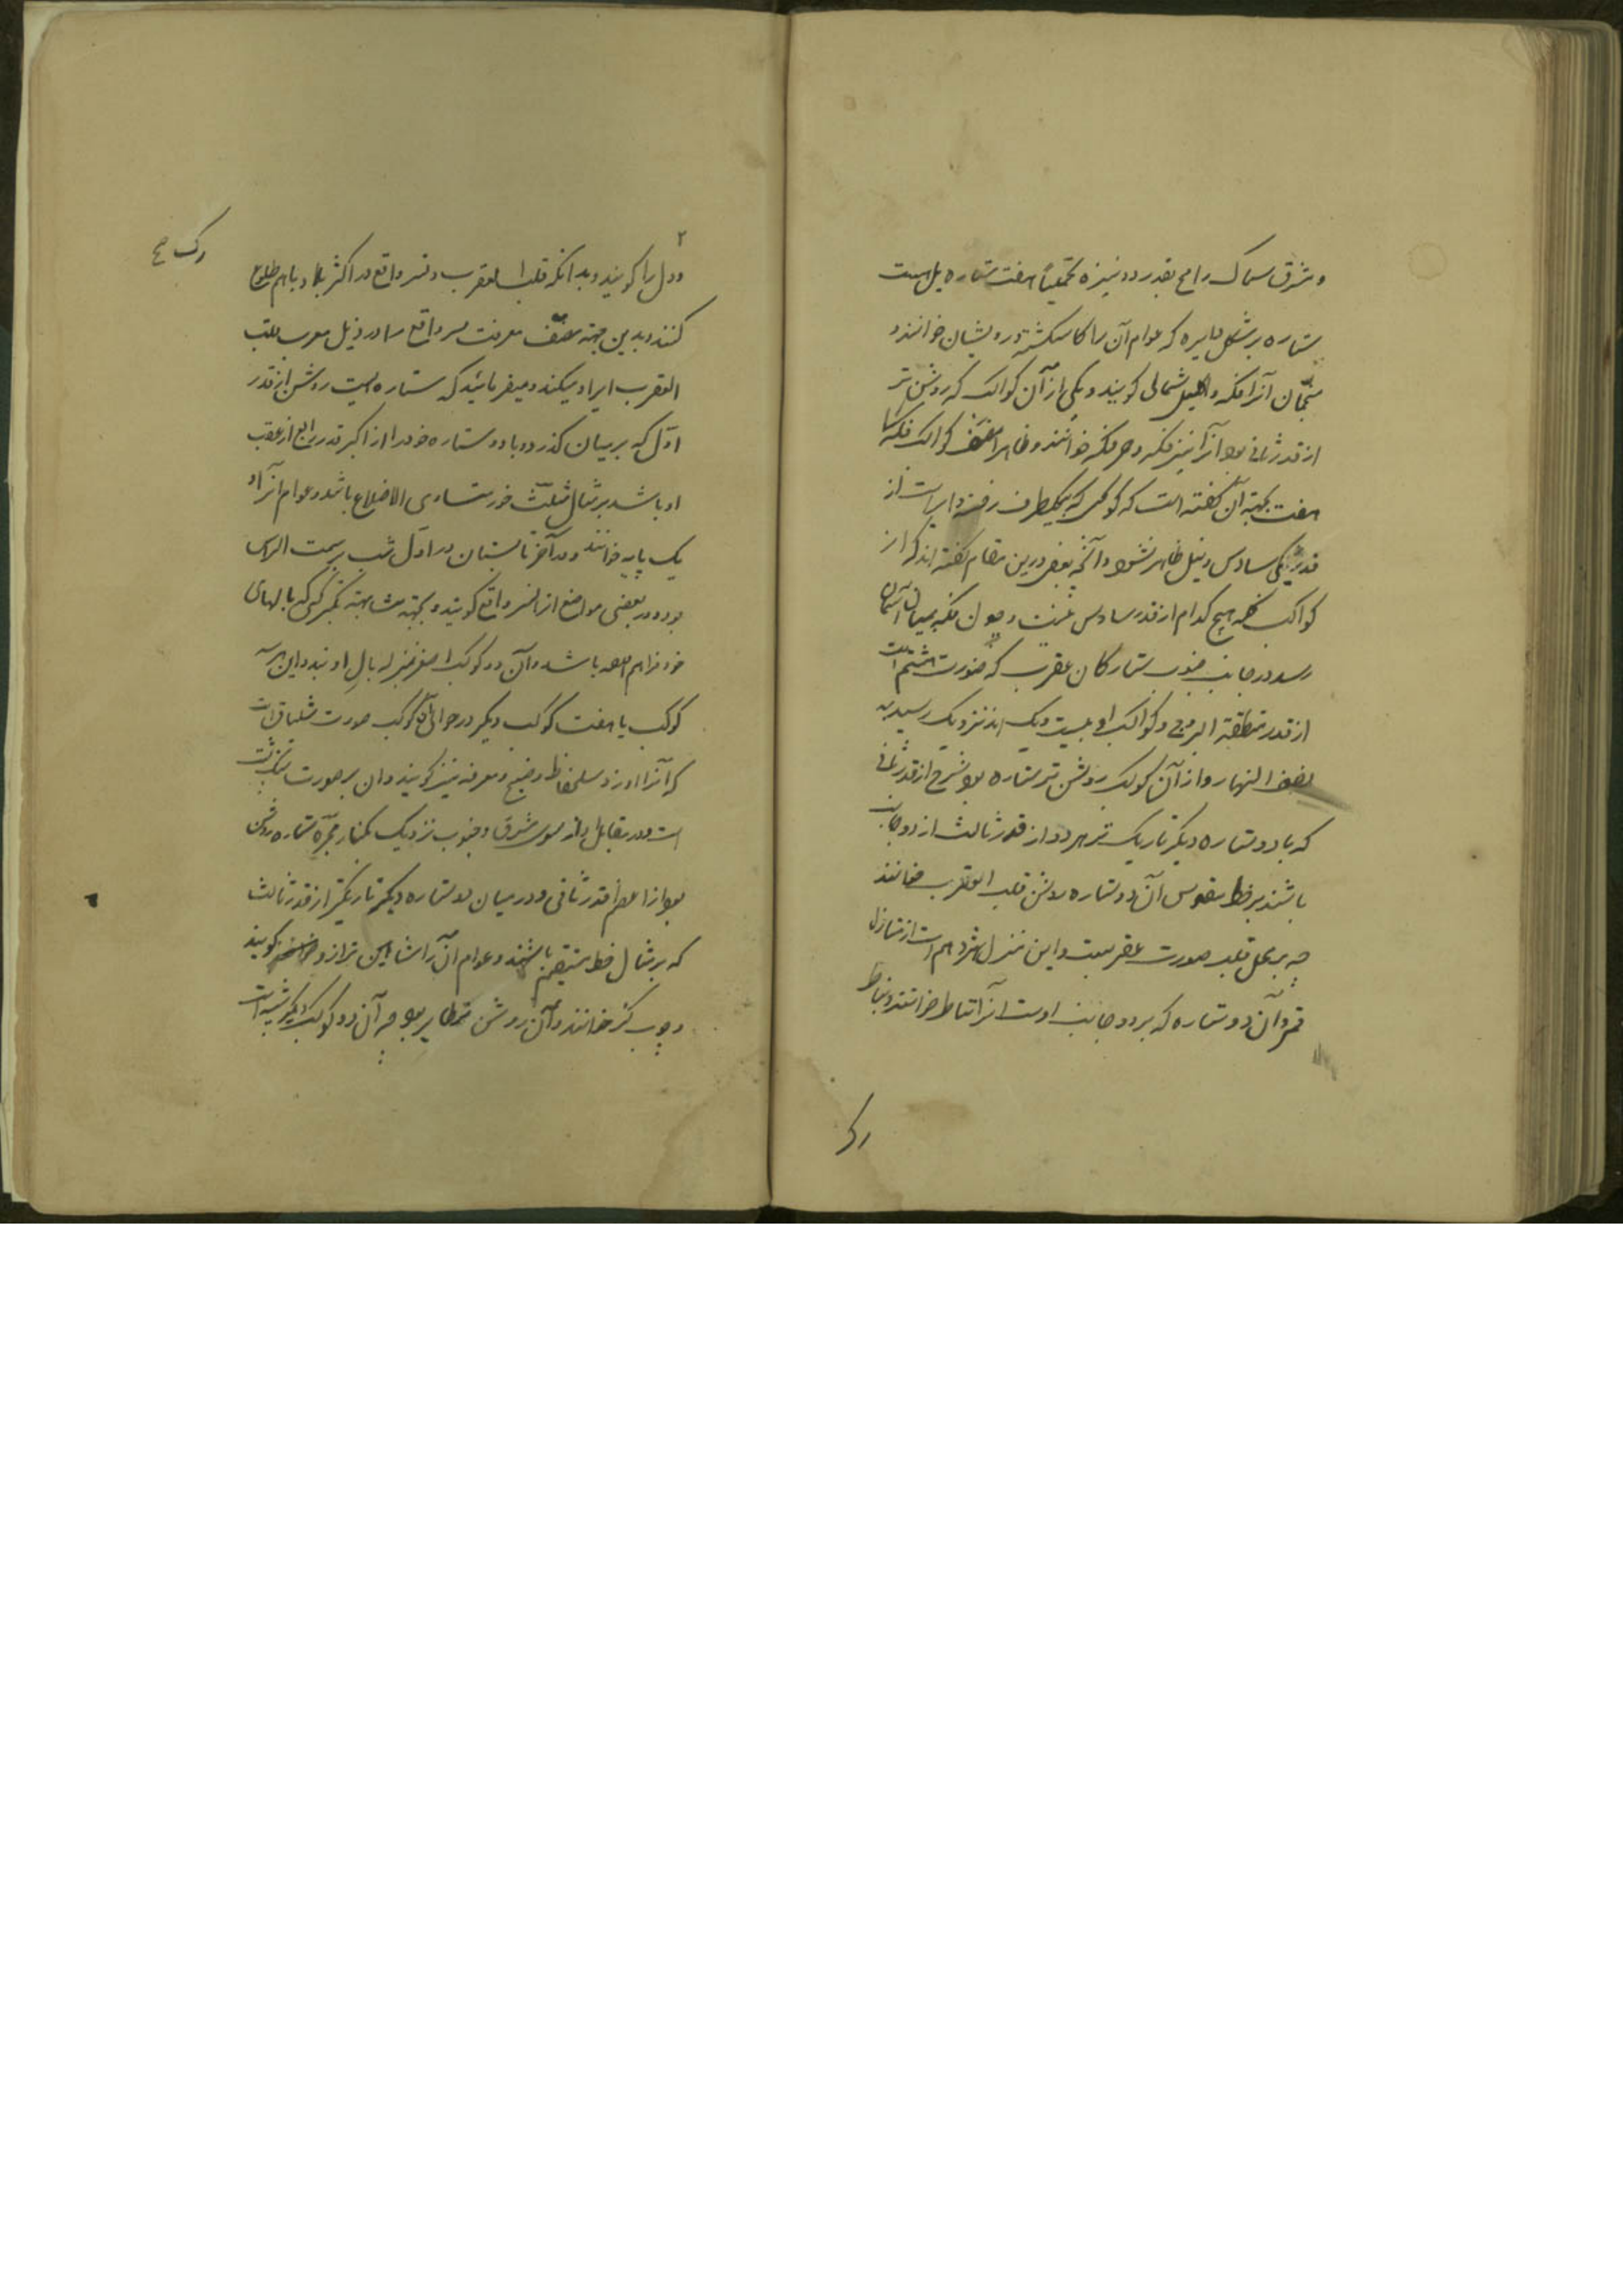 و شرق سماک رامح بقدر دو نیزه تخمیناً هفت ستاره بل هشت
ستاره بر شکل دایره که عوام آن را کاسه شکسته درویشان خوانند و
منجمان آنرا فکه و اکلیل شمالی کویند و یکی از آن کواکب که روشن تر
از قدر ثانی بود آنرا نیز فکه خوانند و ظاهرا مصنف کواکب فکه را
هفت بجهة آن کفته است که کوکبی که بیکطرف رفته از
قدر سادس و نیل ظاهر نشود و آنچه بعضی درین مقام کفته اند که از
کواکب فکه هیچ کدام از قدر سادس نیست و چون فکه بمیان آسمان
رسد در جانب جنوب ستارکان عقرب که صورت هشتم است
از منطقة البروج و کواکب او بیست و یک اند نزدیک رسیده
نصف النهار و از آن کواکب روشن تر ستاره بود سرخ از قدر ثانی
که با دو ستاره دیکر تاریک تر هر دو از قدر ثالث از دو جانب
باشند بر خط مقوس آن دو ستاره روشن قلب العقرب خوانند
چه بر محل قلب صورت عقربست و این منزل هژدهم است از منازل
قمر و آن دو ستاره که بر دو جانب اوست آنرا نیاط خوانند و نیاط
رک
۲
و دل را کویند و بدانکه قلب العقرب و نسر واقع در اکثر بلاد باهم طلوع
کنند و بدین جهة مصنف معرفت نسر واقع را در ذیل قلب
العقرب ایراد میکند و میفرماید که ستاره ایست روشن از قدر
اول که بر میان کذرد و با دو ستاره خرد از اکبر قدر رابع از عقب
او باشد بر مثال مثلث خرد متساوی الاضلاع باشد و عوام آنرا
یک پایه خوانند و در آخر تابستان در اول شب بسمت الراس
بود و در بعضی مواضع از نسر واقع کویند و بجهة مشابهة بکرکسی که بالهای
خود فراهم باشد و آن دو کوکب اصغر بمنزله بال اویند و این سه
کوکب با هفت کوکب دیکر در حوالی آن کوکب صورت شلیاق است
که آنرا اوز و سلحفاة و صنج و معرفه نیز کویند و ان بر صورت است
و در مقابل او از سوی مشرق و جنوب نزدیک بکنار مجره ستاره روشن
بود از اعظم قدر ثانی و در میان دو ستاره دیکر تاریکتر از قدر ثالث
که بر مثال خط مستقیم باشند و عوام آن را شاهین ترازو کویند
و چوب کز خوانند و آن روشن نسر طایر بود چه آن دو کوکب دیکر
رک